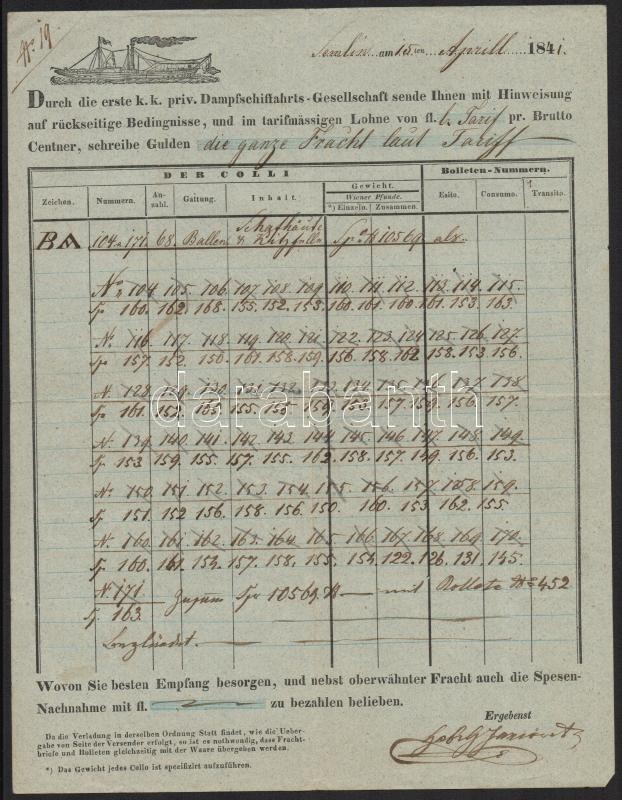 No 19
Semlin am 15ten Aprill 1841.
Durch die erste k. k. priv. Dampfschiffahrts-Gesellschaft sende Ihnen mit Hinweisung
auf rückseitige Bedingnisse, und im tarifmässigen Lohne von fl. l. Tarif pr. Brutto
Centner, schreibe Gulden die ganze Fracht laut Tariff
DER COLLI
Bolleten-Nummern.
Zeichen. Nummern. An-zahl. Gattung. Inhalt. Gewicht. Wiener Pfunde. *) Einzeln. Zusammen. Esito. Consumo. Transito.
BA 104 a 171 68. Ballen Schafhäute & Kitzfelle Spco ℔ 10569 als.
No 104. 105. 106. 107. 108. 109. 110. 111. 112. 113. 114. 115.
Sp 160. 162. 168. 155. 152. 153. 160. 161. 160. 161. 153. 163.
N. 116. 117. 118. 119. 120. 121. 122. 123. 124. 125. 126. 127
Sp 157. 152. 150. 161. 158. 159. 156. 158. 162 158. 153. 156.
N. 128. 129. 130. 131. 132. 133. 134. 135. 136. 137. 138
Sp 161. 155. 155. 157. 159. 156. 157.
darabanth
N. 139. 140. 141. 142. 143. 144. 145. 146. 147. 148. 149.
Sp. 153. 159. 155. 157. 155. 162. 158. 157. 149. 156. 153.
N. 150. 151. 152. 153. 154. 155. 156. 157. 158. 159.
Sp. 151. 152 156. 158. 156. 150. 160. 153. 162. 155.
N. 160. 161. 162. 163. 164. 165. 166. 167. 168. 169. 170.
Sp. 160. 161. 154. 157. 158. 155. 154. 122. 126. 131. 145.
N 171.
Sp. 163. Spco 10569 ℔ — mit Bollete No 452
Wovon Sie besten Empfang besorgen, und nebst oberwähnter Fracht auch die Spesen-
Nachnahme mit fl. zu bezahlen belieben.
Ergebenst
Da die Verladung in derselben Ordnung Statt findet, wie die Ueber-
gabe von Seite der Versender erfolgt, so ist es nothwendig, dass Fracht-
briefe und Bolleten gleichzeitig mit der Waare übergeben werden.
*) Das Gewicht jedes Collo ist spezifizirt aufzuführen.